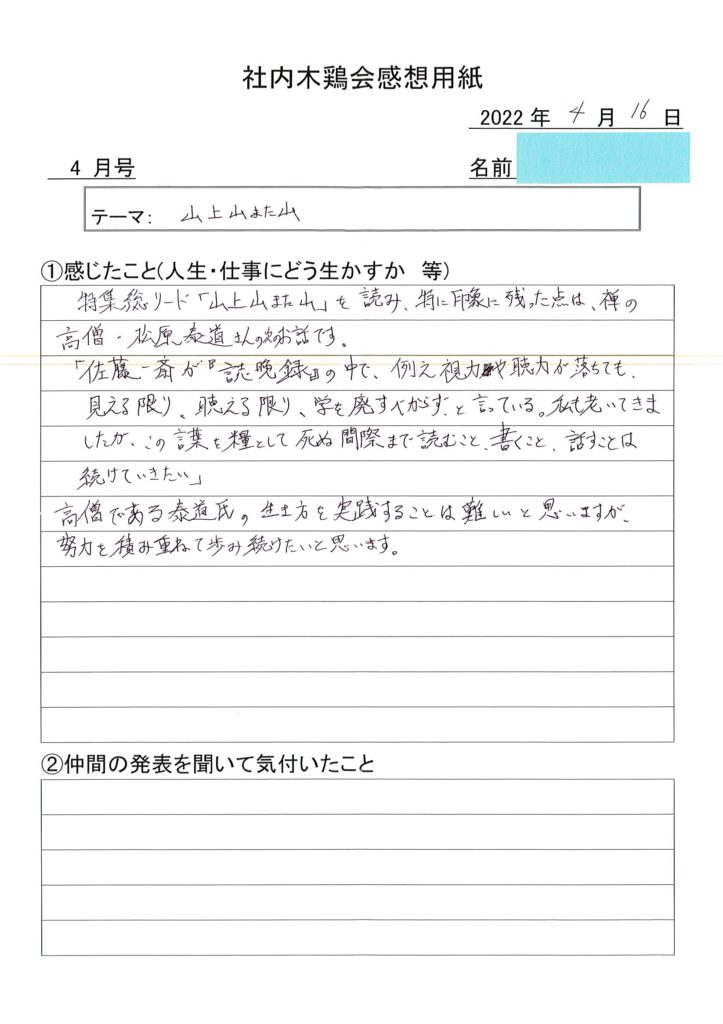 社内木鶏会感想用紙
2022 年 4 月 16 日
4 月号
名前
テーマ: 山上山また山
①感じたこと(人生・仕事にどう生かすか 等)
特集総リード「山上山また山」を読み、特に印象に残った点は、禅の
高僧・松原泰道さんの次のお話です。
「佐藤一斎が『誌晩録』の中で、例え視力や聴力が落ちても、
見える限り、聴える限り、学を廃すべからず、と言っている。私も老いてきま
したが、この言葉を糧として死ぬ間際まで読むこと、書くこと、話すことは
続けていきたい」
高僧である泰道氏の生き方を実践することは難しいと思いますが、
努力を積み重ねて歩み続けたいと思います。
②仲間の発表を聞いて気付いたこと